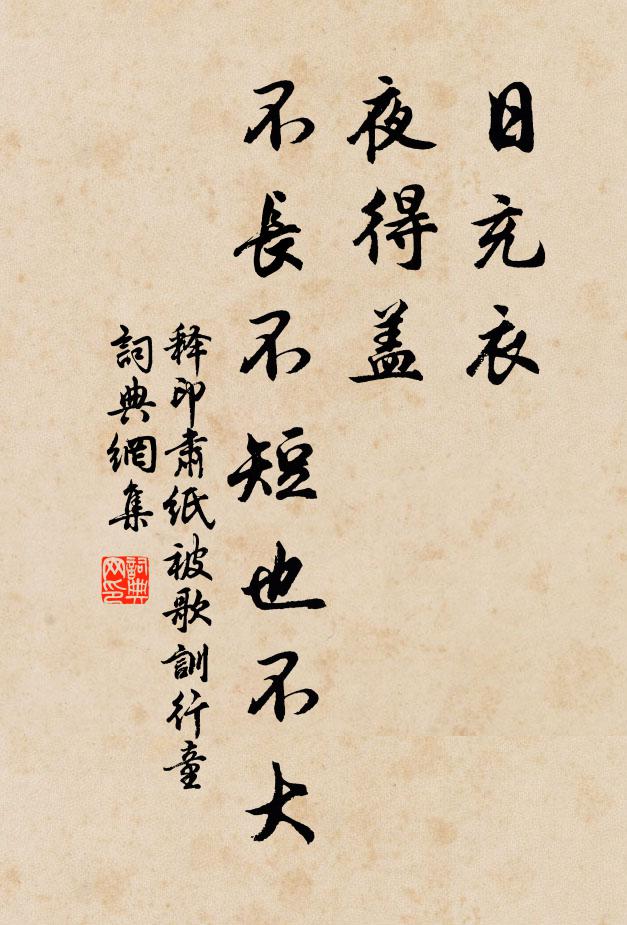 日充衣
夜得盖
不長不短也不大
释印肅纸被歌訓行童
詞典網集
詞典网印